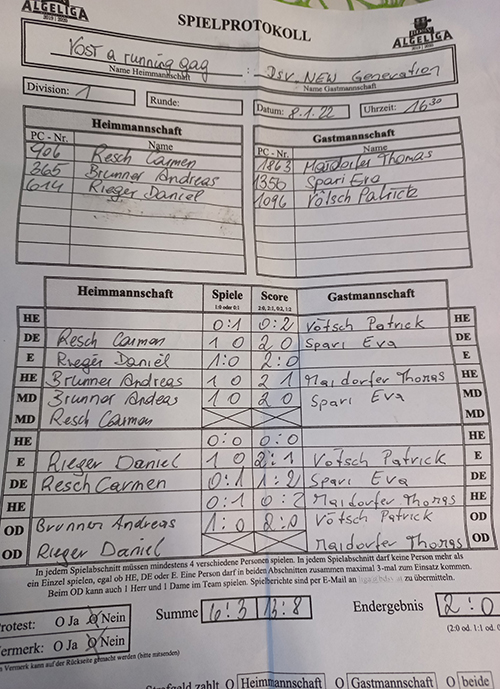 ALGELIGA
2019 | 2020
SPIELPROTOKOLL
ALGELIGA
Yost a running gag : DSV NEW Generation
Name Heimmannschaft Name Gastmannschaft
Division: 1 Runde: Datum: 8.1.22 Uhrzeit: 16 30
Heimmannschaft Gastmannschaft
PC - Nr. Name PC - Nr. Name
906 Resch Carmen 1863 Maidorfer Thomas
365 Brunner Andreas 1356 Spari Eva
614 Rieger Daniel 1096 Vötsch Patrick
Heimmannschaft Spiele Score Gastmannschaft
1:0 oder 0:1 2:0, 2:1, 0:2, 1:2
HE 0:1 0:2 Vötsch Patrick HE
DE Resch Carmen 1 0 2 0 Spari Eva DE
E Rieger Daniel 1:0 2:0 E
HE Brunner Andreas 1 0 2 1 Maidorfer Thomas HE
MD Brunner Andeas 1 0 2 0 Spari Eva MD
MD Resch Carmen MD
HE 0:0 0:0 HE
E Rieger Daniel 1 0 2:1 Vötsch Patrick E
DE Resch Carmen 0:1 1:2 Spari Eva DE
HE 0:1 0:2 Maidorfer Thomas HE
OD Brunner Andreas 1:0 2:0 Vötsch Patrick OD
OD Rieger Daniel Maidorfer Thomas OD
In jedem Spielabschnitt müssen mindestens 4 verschiedene Personen spielen. In jedem Spielabschnitt darf keine Person mehr als
ein Einzel spielen, egal ob HE, DE oder E. Eine Person darf in beiden Abschnitten zusammen maximal 3-mal zum Einsatz kommen.
Beim OD kann auch 1 Herr und 1 Dame im Team spielen. Spielberichte sind per E-Mail an zu übermitteln.
Protest: O Ja O Nein Summe 6:3 13:8 Endergebnis 2:0
Vermerk: O Ja O Nein (2:0 od. 1:1 od.
Vermerk kann auf der Rückseite gemacht werden (bitte mitsenden)
zahlt O Heimmannschaft O Gastmannschaft O beide